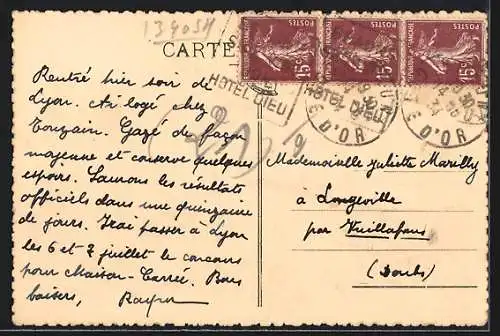 139054
CARTE
POSTES
15c
REPUBLIQUE FRANÇAISE
POSTES
15c
REPUBLIQUE FRANÇAISE
POSTES
15c
REPUBLIQUE FRANÇAISE
HOTEL DIEU
HOTEL DIEU
D'OR
D'OR
Rentré hier soir de
Lyon. Ai logé chez
Touzain. Gazé de façon
moyenne et conserve quelques
espoirs. Saurons les résultats
officiels dans une quinzaine
de jours. Irai passer à Lyon
les 6 et 7 juillet le concours
pour Maison-Carrée. Bons
baisers,
Mademoiselle Juliette Marilly
à Longeville
par Vuillafans
(Doubs)